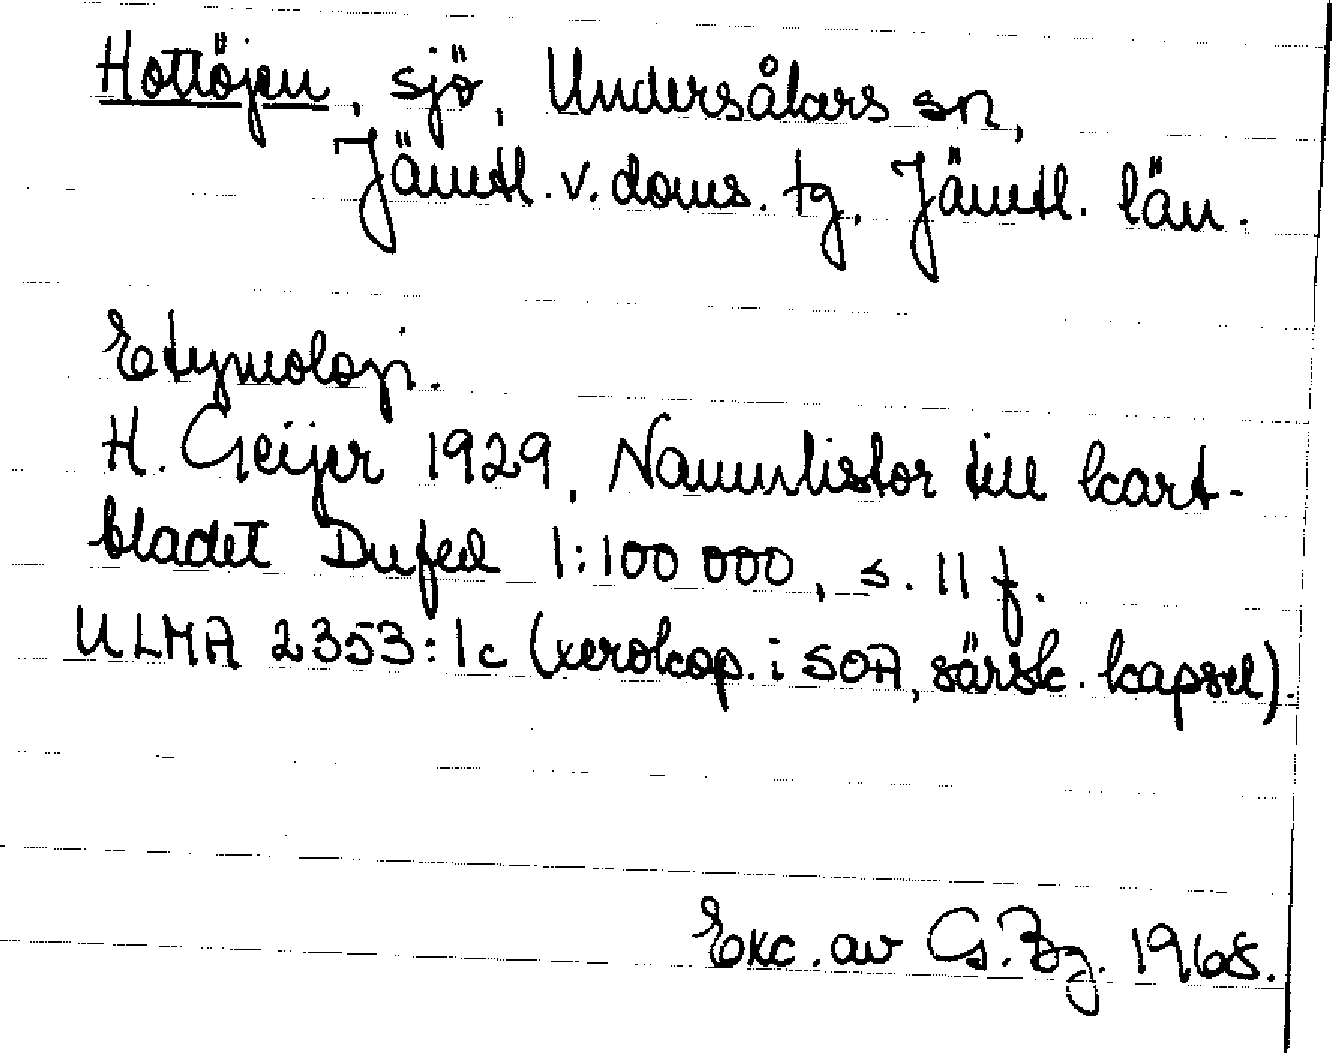 Hottöjen, sjö, Undersåkers sn,
Jämtl. v. doms. tg, Jämtl. län.
Etymologi.
H. Geijer 1929, Namnlistor till kart-
bladet Dufed 1:100 000, s. 11 f.
ULMA 2353:1c (xerokop. i SOA, särsk. kapsel).
Exc. av G. Bg. 1968.